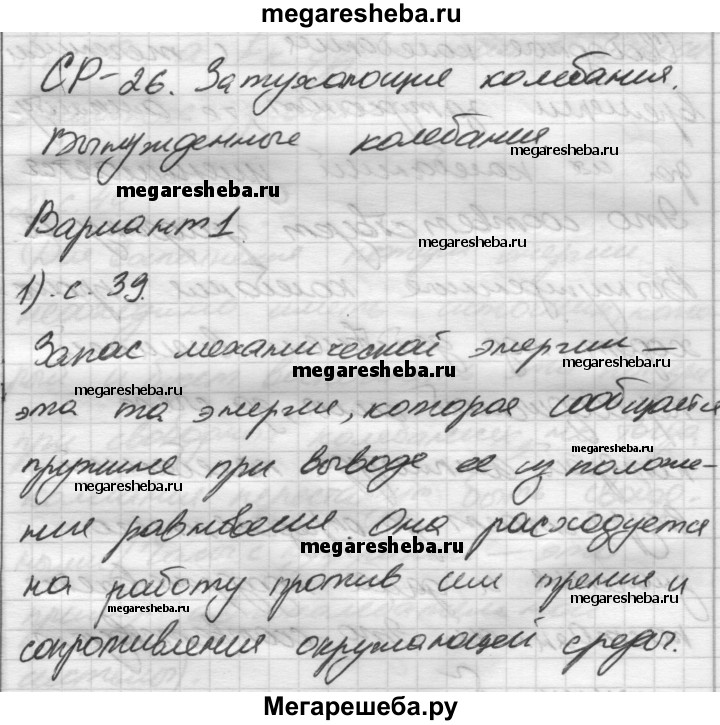 megaresheba.ru
СР-26. Затухающие колебания.
Вынужденные колебания
megaresheba.ru
megaresheba.ru
Вариант 1
megaresheba.ru
1). с. 39.
Запас механической энергии –
megaresheba.ru
megaresheba.ru
megaresheba.ru
эта та энергия, которая сообщается
megaresheba.ru
пружине при выводе ее из положе-
megaresheba.ru
ния равновесия. Она расходуется
megaresheba.ru
на работу против сил трения и
megaresheba.ru
megaresheba.ru
сопротивления окружающей среды.
Мегарешеба.ру